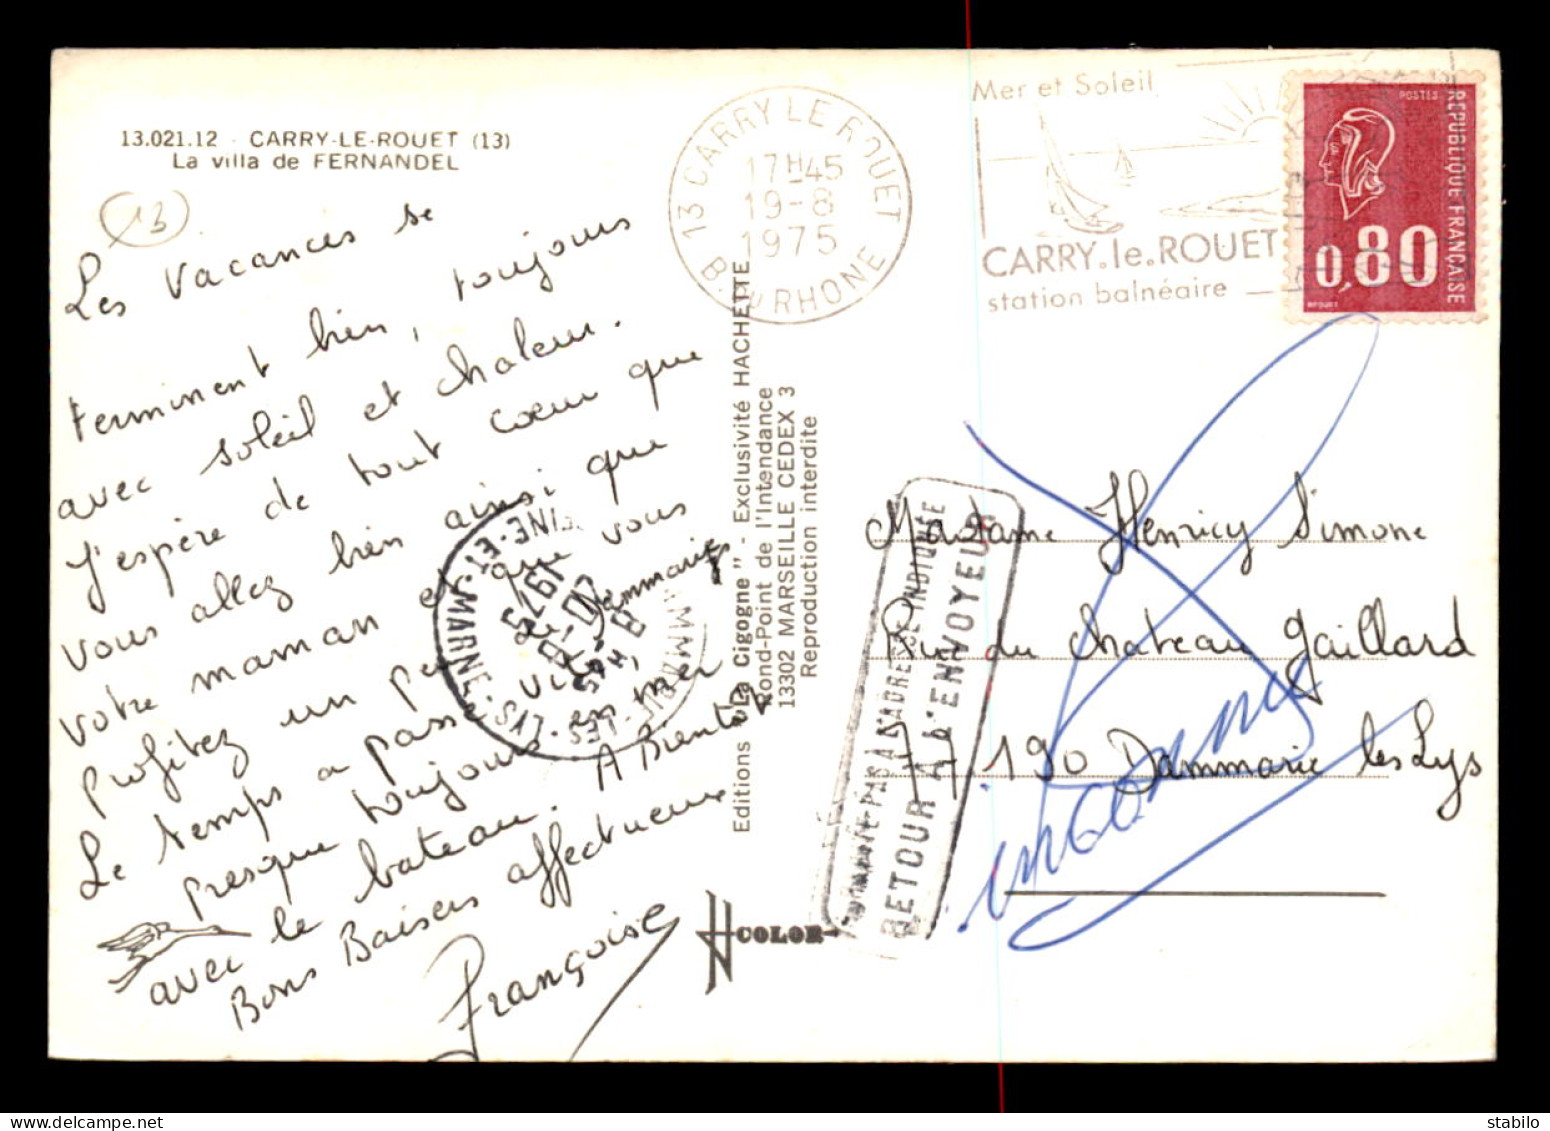 13.021.12 - CARRY-LE-ROUET (13)
La villa de FERNANDEL
13
Les vacances se
terminent bien, toujours
avec soleil et chaleur.
J'espère de tout cœur que
vous allez bien ainsi que
votre maman et que vous
profitez un peu de Dammarie
Le temps a passé vite
presque toujours en mer
avec le bateau. A Bientôt
Bons Baisers affectueux
Françoise
Editions "La Cigogne" - Exclusivité HACHETTE
Rond-Point de l'Intendance
13302 MARSEILLE CEDEX 3
Reproduction interdite
COLOR
13 CARRY LE ROUET
17H-45
19-8
1975
B. DU RHONE
Mer et Soleil
CARRY.le.ROUET
station balnéaire
POSTES
REPUBLIQUE FRANÇAISE
0,80
LES-LYS SEINE-ET-MARNE
1975
N'HABITE PAS A L'ADRESSE INDIQUEE
RETOUR A L'ENVOYEUR
Madame Henricy Simone
Rue du chateau Gaillard
77190 Dammarie les Lys
inconnu
www.delcampe.net
sfoulon